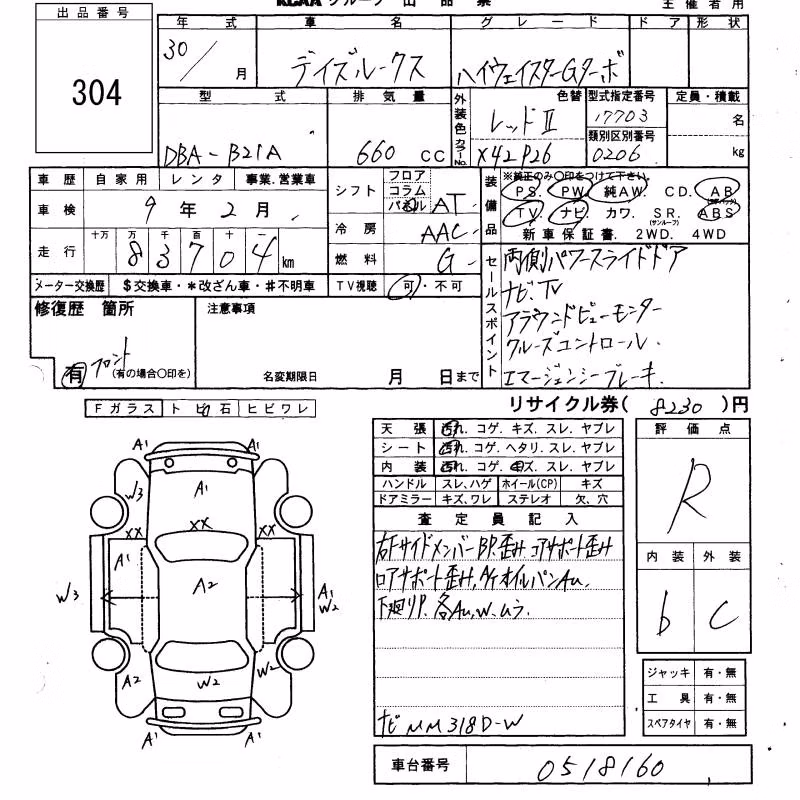 KCAA グループ 出 品 票
主 催 者 用
出 品 番 号
304
年 式
車 名
グ レ ー ド
ド ア
形 状
30/ 月
デイズルークス
ハイウェイスターGターボ
型 式
排 気 量
外装色
カラーNo.
色替
型式指定番号
定員・積載
DBA-B21A
660 CC
レッドII
X42 P26
17703
類別区別番号
0206
名
kg
車 歴 自 家 用 レ ン タ 事業.営業車
シフト
フロア
コラム
パネル
AT
装備品
※純正のみ○印をつけて下さい。
PS. PW. 純AW. CD. AB
TV. ナビ. カワ. SR. ABS
(サンルーフ)
新 車 保 証 書. 2WD. 4WD
車 検 9 年 2 月
冷 房 AAC
走 行
十万 万 千 百 十
8 3 7 0 4 km
燃 料 G
メーター交換歴 $交換車・*改ざん車・#不明車
TV視聴 可・不可
セールスポイント
両側パワースライドドア
ナビ.TV
アラウンドビューモニター
クルーズコントロール
エマージェンシーブレーキ
修復歴 箇所
注意事項
有 フロント
(有の場合○印を)
名変期限日 月 日まで
リサイクル券( 8230 )円
Fガラス ト ビ 石 ヒビワレ
天 張 汚れ. コゲ. キズ. スレ. ヤブレ
シート 汚れ. コゲ. ヘタリ. スレ. ヤブレ
内 装 汚れ. コゲ. キズ. スレ. ヤブレ
ハンドル スレ、ハゲ ホイール(CP) キズ
ドアミラー キズ、ワレ ステレオ 欠、穴
評 価 点
R
内 装 外 装
b C
査 定 員 記 入
右Fサイドメンバー BP.歪み コアサポート歪み
ロアサポート歪み, A/Tオイルパン Au.
下廻りP. 各Au,W.ムラ.
ナビ MM318D-W
A1 A1
W3 A1
XX XX XX
A1 A2
W3 A1
W2
A2 W2 W2
A1 A1
ジャッキ 有・無
工 具 有・無
スペアタイヤ 有・無
車台番号 0518160